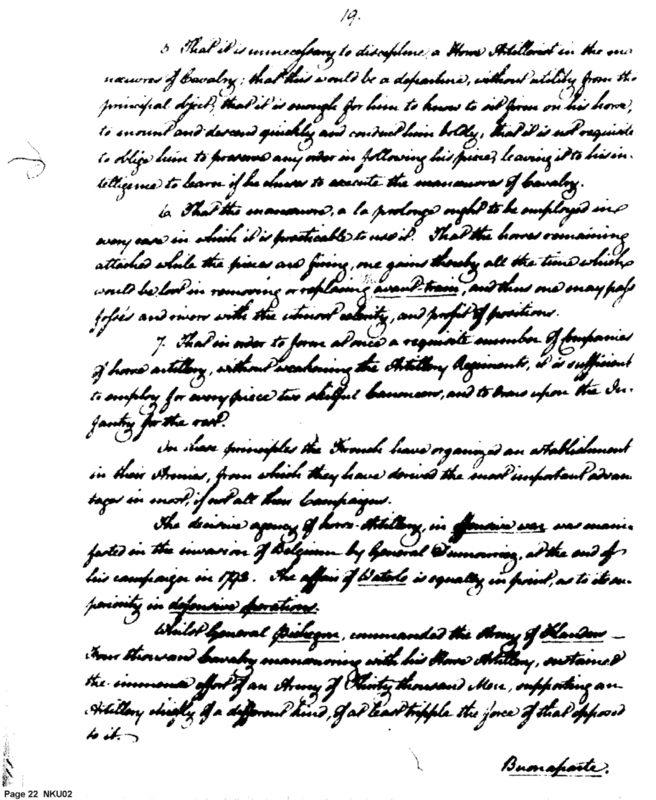 19.
5. That it is unnecessary to discipline a Horse Artillerist in the ma-
nœuvres of Cavalry; that this would be a departure, without utility from the
principal object, that it is enough for him to know to sit firm on his horse,
to mount and descend quickly and conduct him boldly, that it is not requisite
to oblige him to preserve any order in following his piece, leaving it to his in-
telligence to learn if he chuses to execute the manœuvres of Cavalry.
6. That the manœuvre, a la prolonge ought to be employed in
every case in which it is practicable to use it. That the horses remaining
attached while the pieces are firing, one gains thereby all the time which
would be lost in removing or replacing avant-train, and thus one may pass
fossés and rivers with the utmost celerity, and profit of positions.
7. That in order to form at once a requisite number of Companies
of horse artillery, without weakening the Artillery Regiments, it is sufficient
to employ for every piece two skilful Canoneers, and to draw upon the In-
fantry for the rest.
On these principles the French have organized an establishment
in their Armies, from which they have derived the most important advan-
tages in most, if not all their Campaigns.
The decisive agency of horse-Artillery, in offensive war was mani-
fested in the invasion of Belgium by General Dumourier, at the end of
his campaign in 1792. The affair of Waterlo is equally in point, as to its su-
periority in defensive operations.
Whilst General Pichegru, commanded the Army of Flanders —
Four thousand Cavalry manœuvring with his Horse Artillery, sustained
the immense effort of an Army of Thirty thousand Men, supporting an
Artillery chiefly of a different kind, of at least tripple the force of that opposed
to it.
Buonaparte.
Page 22 NKU02